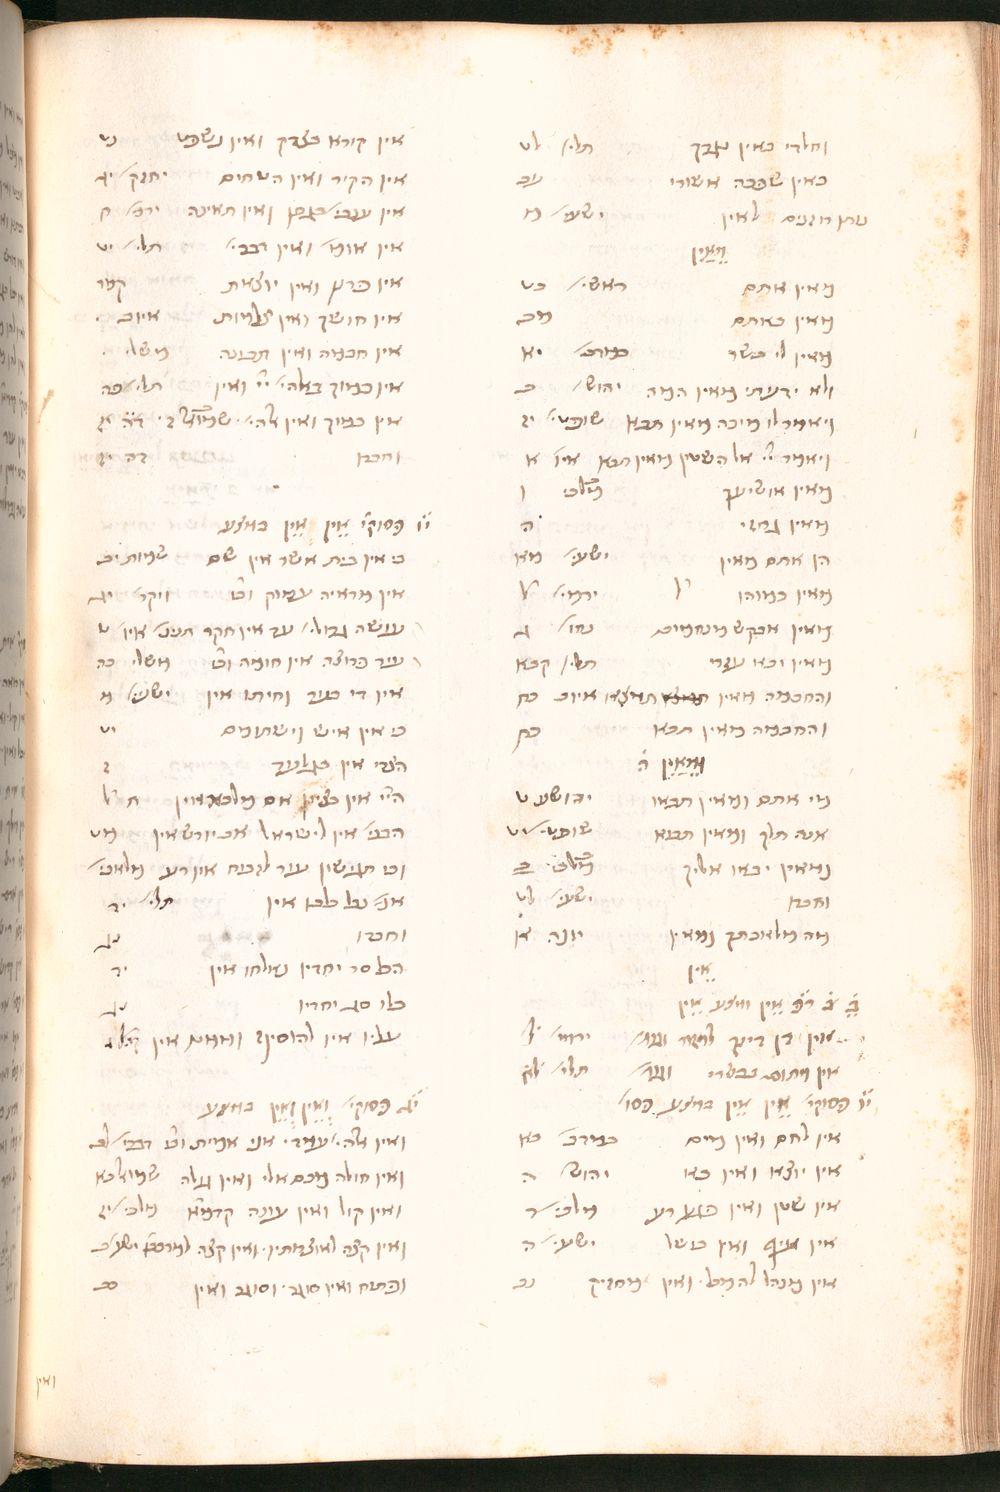 וחלדי כאין נגדך תלי׳ לט
כאין שפכה אשורי עג
נותן רוזנים לאין ישעי׳ מ
מאין
מאין אתם ראשי׳ כט
מאין באתם מב
מאין לי בשר במדבר יא
ולא ידעתי מאין המה יהוש׳ ב
ויאמר לו מיכה מאין תבא שופטי׳ יז
ויאמר יי׳ אל השטן מאין תבא איו׳ א
מאין אושיעך מלכי׳ ו
מאין גחזי ה
הן אתם מאין ישעי׳ מא
מאין כמוהו ירמי׳ ל
מאין אבקש מנחמים נחו׳ ג
מאין יבא עזרי תלי׳ קכא
והחכמה מאין תמצא איוב כח
והחכמה מאין תבא כח
ומאין ה
מי אתם ומאין תבאו יהושע ט
אנה תלך ומאין תבא שופטי׳ יט
ומאין יבאו אליך מלכי׳ ב
וחברו ישעי׳ לט
מה מלאכתך ומאין יונה א
אין
אין דן דינך למזור ירמי׳ ל
אין מתום בבשרי תלי׳ לח
יו פסוקי׳ אין אין באמצע הפסו׳
אין לחם ואין מים במדבר כא
אין יוצא ואין בא יהוש׳ ו
אין שטן ואין פגע רע מלכי׳ ה
אין עיף ואין כושל ישעי׳ ה
אין מנהל לה מכל ואין מחזיק נא
אין קורא בצדק ואין נשפט נט
אין הקיר ואין הטחים יחזק׳ יג
אין ענבי׳ בגפן ואין תאינה ירמ׳ ח
אין אומר ואין דברי׳ תלי׳ יט
אין פרץ ואין יוצאת קמד
אין חושך ואין צלמות איוב
אין חכמה ואין תבונה משלי
אין כמוך באלהי׳ יי׳ ואין תלי׳ פה
אין כמוך ואין אלהי׳ שמואל ז דה יז
וחברו
יו פסוקי׳ אין אין באמצע
כי אין בית אשר אין שם שמות יב
אין מראיה עמוק ויקר׳ יג
עושה גדולו׳ עד אין חקר איו׳ ט
עיר פרוצה אין חומה משלי כה
אין די בער וחיתו אין ישעי׳ מ
כי אין איש וישתומם נט
הצרי אין בגלעד
היי׳ אין בציון אם מלכה אין ח
הבני׳ אין לישראל אם יורש אין מט
וכי תגישון עור לזבח אין רע מלאכי׳
אמר נבל בלבו אין תלי׳ יד
וחברו נג
הכל סר יחדיו נאלחו אין יד
כלו סג יחדיו נג
עליו אין להוסיף וממנו אין
יג פסוקי׳ ואין ואין באמצע
ואין אלהי׳ עמדי אני אמית דברי׳ לב
ואין חולה מכם אלי ואין גולה שמואל כב
ואין קול ואין עונה קדמ׳ מלכי׳ יח
ואין קצה לאוצרותיו ואין קצה למרכבו׳ ישעי׳ ב
ופתח ואין סוגר וסוגר ואין כב
ואין